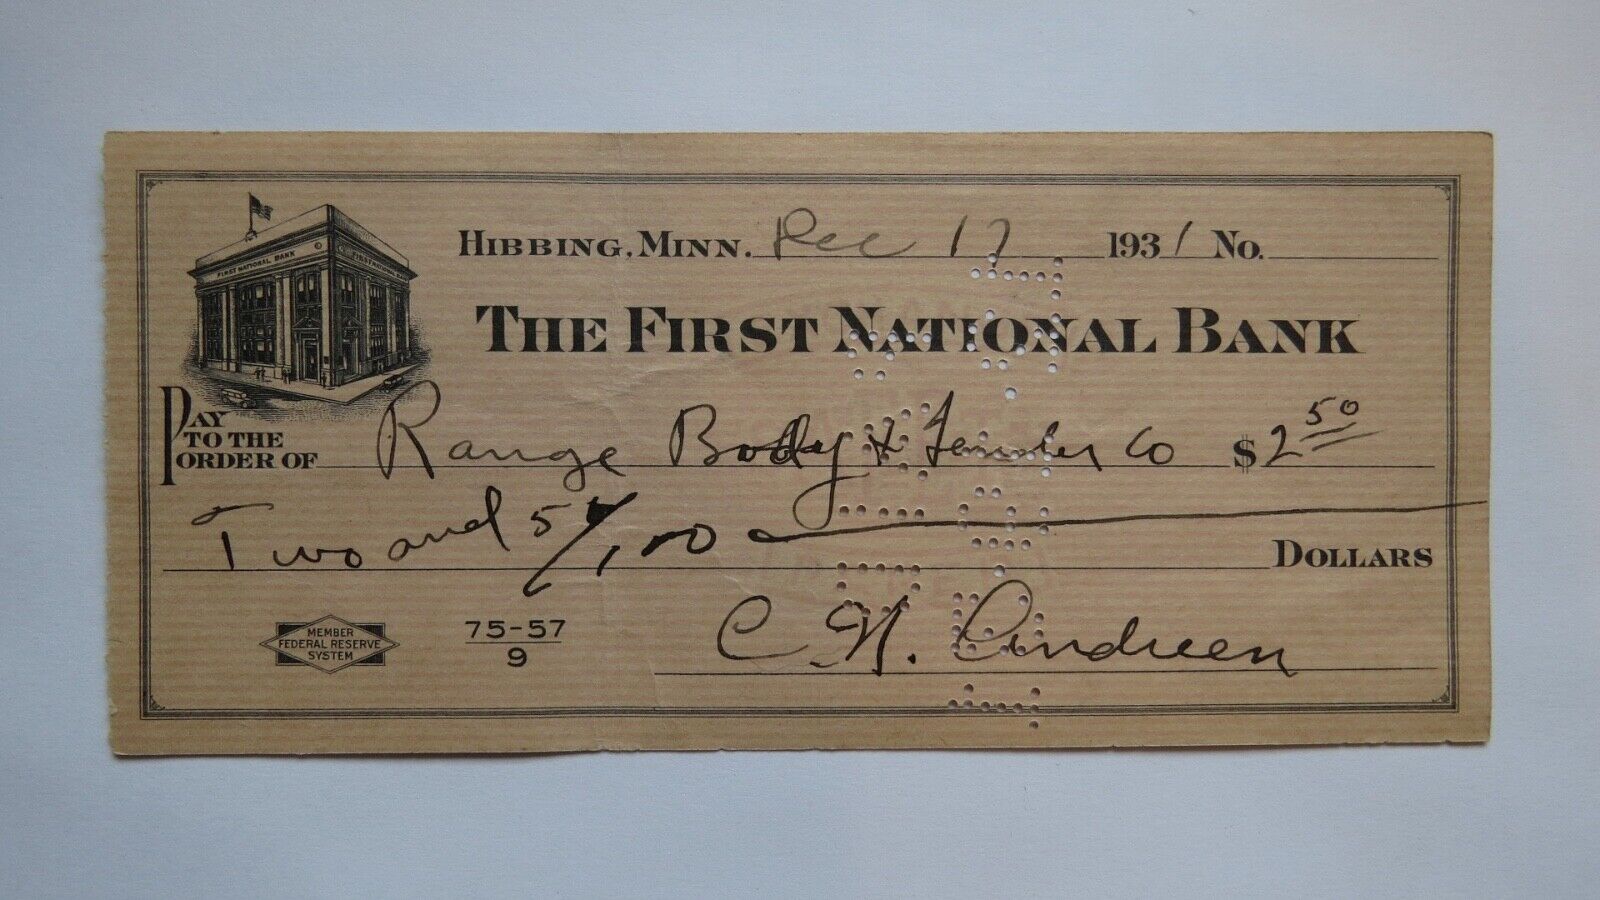 FIRST NATIONAL BANK
FIRST NATIONAL BANK
HIBBING, MINN. Dec 17 1931 No.
THE FIRST NATIONAL BANK
PAY TO THE ORDER OF Range Body & Fender Co $2 50
Two and 50/100 DOLLARS
MEMBER
FEDERAL RESERVE
SYSTEM
75-57
9
C. W. Andreen